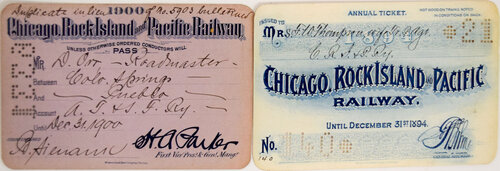 Duplicate in lieu of No 5903 bulletined
1900
Chicago, Rock Island and Pacific Railway.
UNLESS OTHERWISE ORDERED CONDUCTORS WILL
PASS
D. Orr - Roadmaster -
Between Colo. Springs
and Pueblo
Account A. T. & S. F. Ry.
Until Dec. 31, 1900
H. A. Parker
First Vice Pres't & Gen'l Mang'r
ANNUAL TICKET.
NOT GOOD ON TRAINS NOTED IN CONDITIONS ON BACK.
ISSUED TO
MR. F. W. Thompson
CHICAGO, ROCK ISLAND AND PACIFIC
RAILWAY.
UNTIL DECEMBER 31ST 1894.
No. 140
140